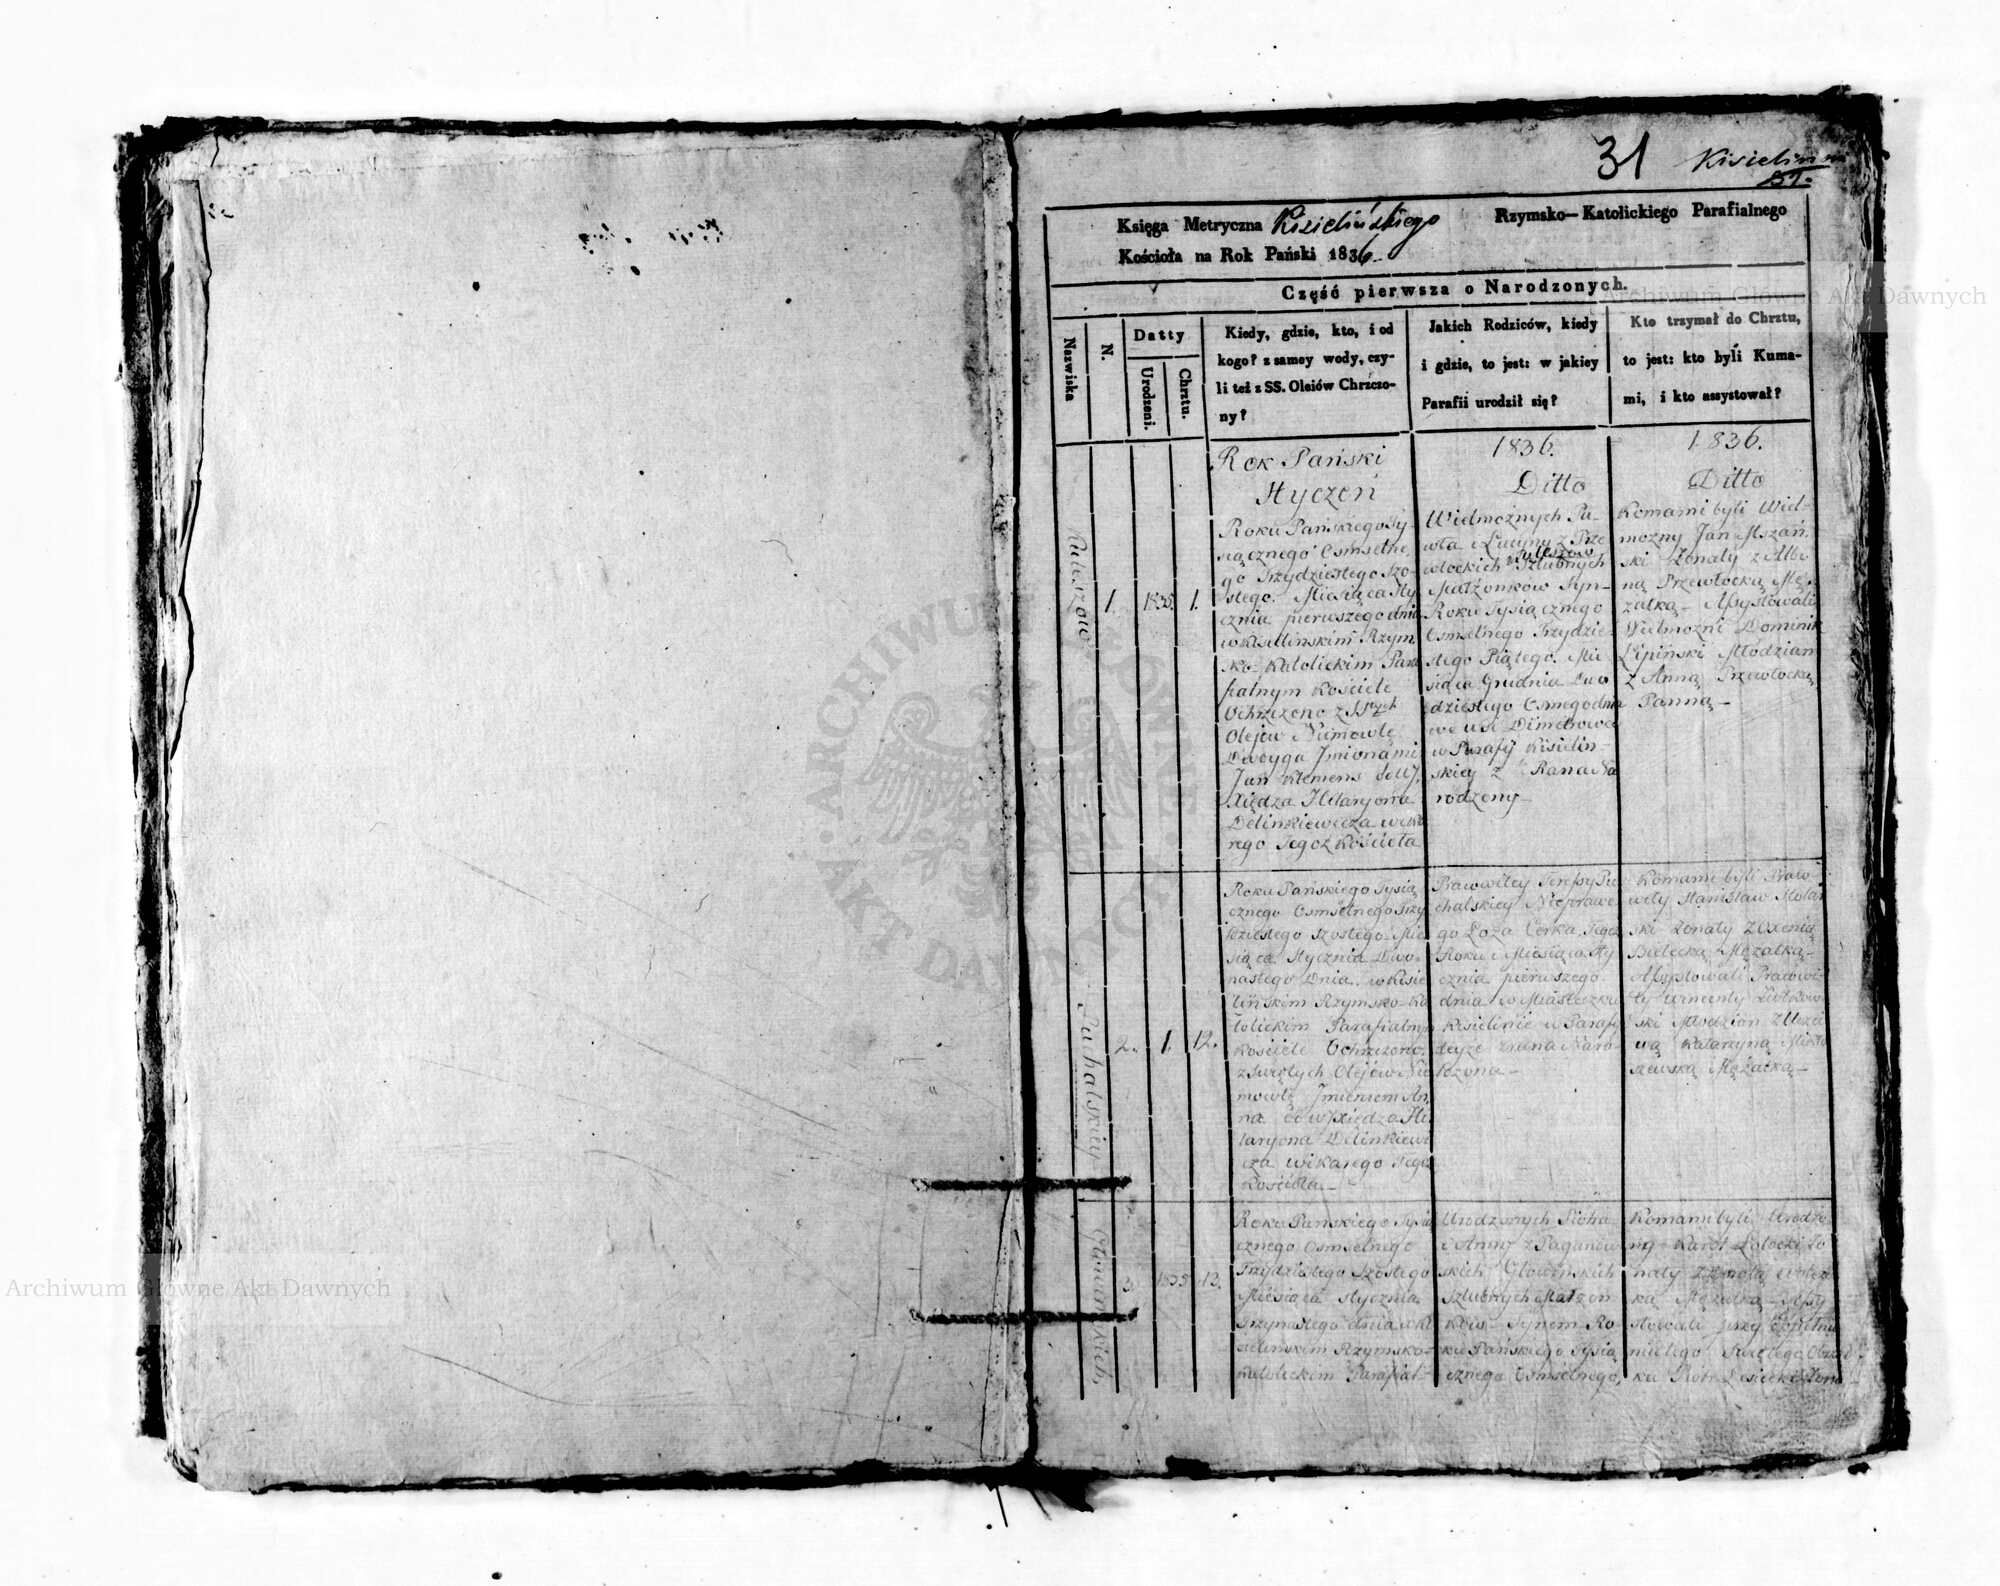 31 Kisielin
Księga Metryczna Kisielińskiego Rzymsko-Katolickiego Parafialnego
Kościoła na Rok Pański 1836.
Część pierwsza o Narodzonych.
Nazwiska
N.
Datty
Urodzeni.
Chrztu.
Kiedy, gdzie, kto, i od
kogo? z samey wody, czy-
li też z SS. Oleiów Chrzczo-
ny?
Jakich Rodziców, kiedy
i gdzie, to jest: w jakiey
Parafii urodził się?
Kto trzymał do Chrztu,
to jest: kto byli Kuma-
mi, i kto assystował?
Rok Pański
Styczeń
1836.
Ditto
1836.
Ditto
Kuleszow
1.
1835.
1.
Roku Pańskiego Ty-
siącznego Osmsetne
go Trzydziestego Szo-
stego. Miesiąca Sty
cznia pierwszego dnia
w Kisielinskim Rzym
sko-Katolickim Para
fialnym Kościele
Ochrzczono z SStych
Olejow Niemowlę
Dwoyga Jmionami
Jan Klemens od W J.
Xiędza Hilaryona
Delinkiewicza wika
rego Tegoż Kościoła
Wielmożnych Pa-
wła i Lucyny z Prze
włockich Kuleszow Szlubnych
Małżonków Syn-
Roku Tysiącznego
Osmsetnego Trzydzie-
stego Piątego. Mie
siąca Grudnia Dwo
dziestego Osmego dnia
we wsi
w Parafij Kisielin-
skiey z Rana Na
rodzony-
Komami byli Wiel-
możny Jan Mszań
ski Zonaty z Albi
ną Przewłocką Mę-
zatką- Assystowali
Wielmożni Dominik
Lipiński Młodzian
z Anną Przewłocką
Panną-
Puchalskiey
2.
1.
12.
Roku Pańskiego Tysią
cznego Osmsetnego Trzy
dziestego Szostego Mie
siąca Stycznia Dwo-
nastego Dnia. w Kisie
lińskim Rzymsko-Ka
tolickim Parafialnym
Kościele Ochrzczono.
z Swiętych Olejow Nie
mowlę Jmieniem An
na od W J Xiędza Hi
laryona Delinkiewi
cza wikarego Tegoż
Kościoła-
Prawowitey Teressy Pu
chalskiey Nieprawe
go Łoża Corka Tegoż
Roku i Miesiąca Sty
cznia pierwszego
dnia w Miasteczku
Kisielinie w Parafij
teyże zrana Naro-
dzona-
Komami byli Praw-
wity Stanisław Stolar
ski Zonaty z Xenią
Bielecką Mężatką-
Assystowali Prawowi-
ty Wincenty Ziołkow
ski Młodzian z Urzci
wą Katarzyną Miko
szewską Mężatką-
Głowinskich
3.
1835
13.
Roku Pańskiego Tysią
cznego Osmsetnego
Trzydziestego Szostego
Miesiąca Stycznia
Trzynastego dnia w Ki
sielinskim Rzymsko-
Katolickim Parafial-
Urodzonych Piotra
i Anny z Paganow
skich Głowinskich
Szlubnych Małżon
ków Synem Ro
ku Pańskiego Tysią
cznego Osmsetnego,
Komami byli Urodzo
ny Karol Zołocki Zo
naty
ką Mężatką- Assy
stowali przy dopełnie
niu tego Swiętego Obrząd
ku Piotr
Archiwum Główne Akt Dawnych
Archiwum Główne Akt Dawnych
ARCHIWUM GŁÓWNE AKT DAWNYCH